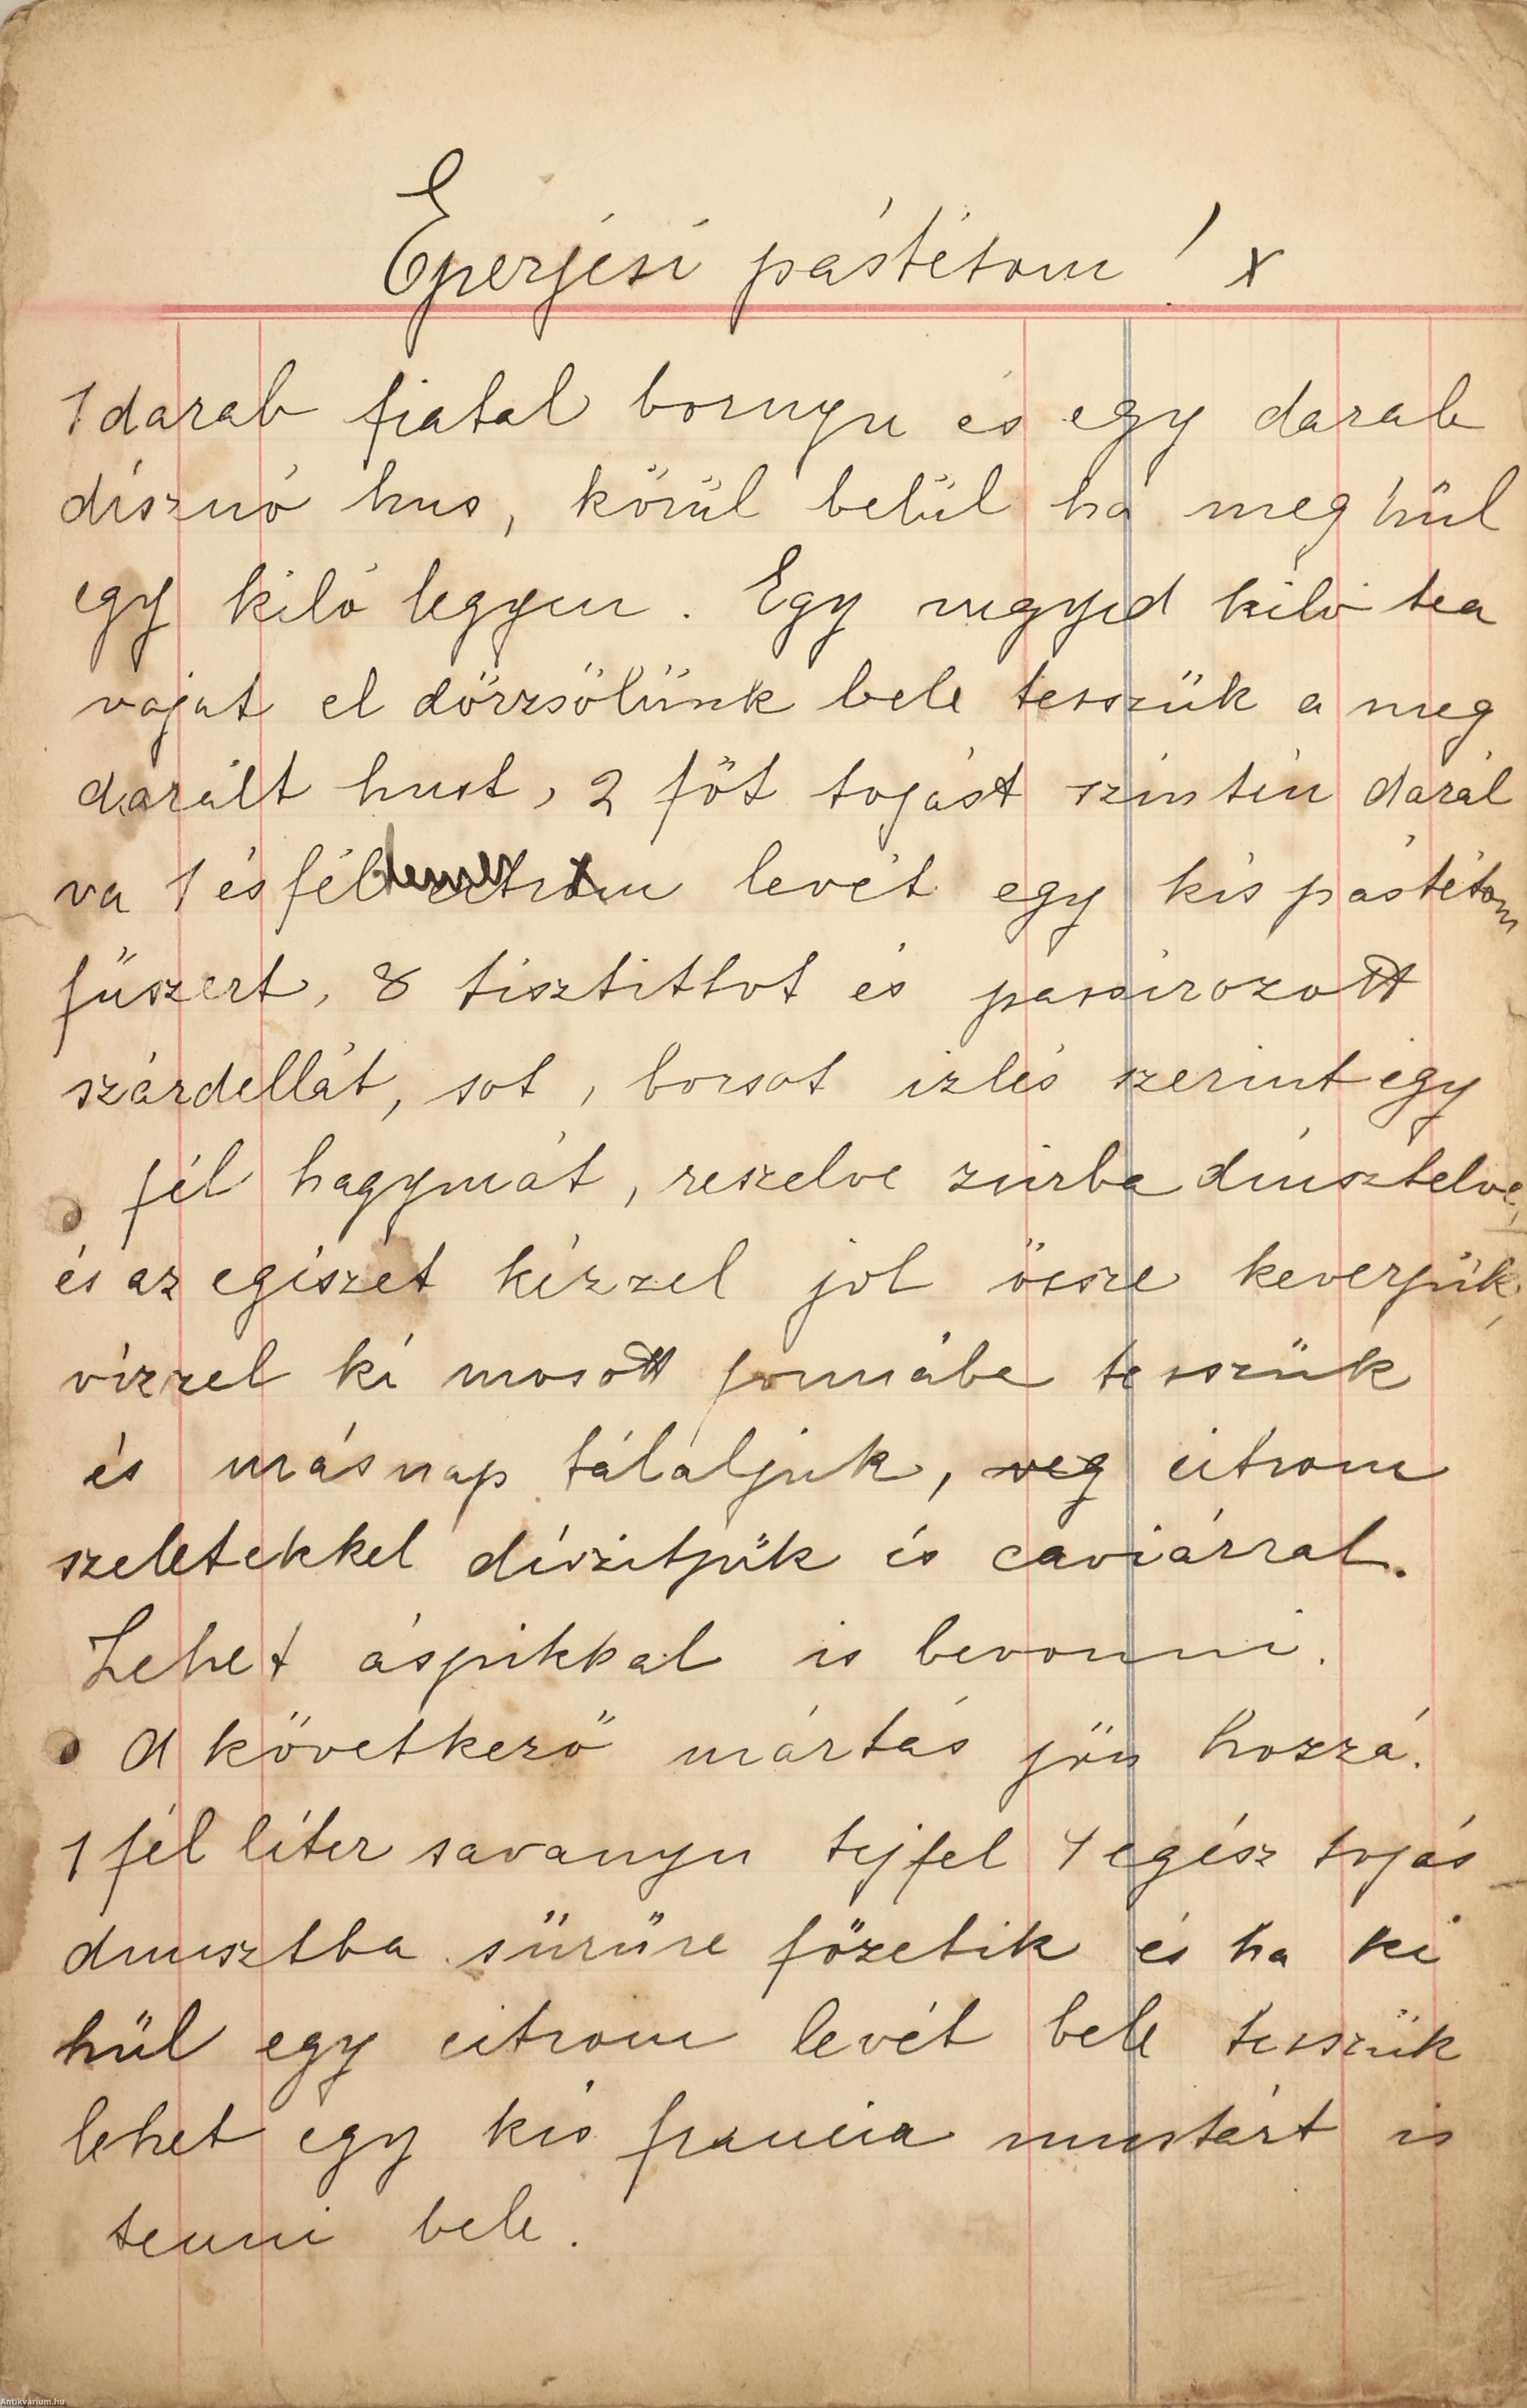 Eperjesi pástétom! x
1 darab fiatal bornyu és egy darab
disznó hus, körül belül ha meg hül
egy kiló legyen. Egy negyed kiló tea
vajat el dörzsölünk bele tesszük a meg
darált hust, 2 főt tojást szintén darál
va 1 és fél citrom levét egy kis pástétom
fűszert, 8 tisztittot és passirozott
szárdellát, sot, borsot izlés szerint egy
fél hagymát, reszelve zsirba dinsztelve,
és az egészet kézzel jol össze keverjük,
vizzel ki mosott formába tesszük
és másnap tálaljuk, veg citrom
szeletekkel díszitjük és caviárral.
Lehet áspikkal is bevonni.
A következő mártás jön hozzá.
1 fél liter savanyu tejfel 4 egész tojás
dunsztba sűrűre főzetik és ha ki
hül egy citrom levét bele tesszük
lehet egy kis francia mustárt is
tenni bele.
Antikvárium.hu